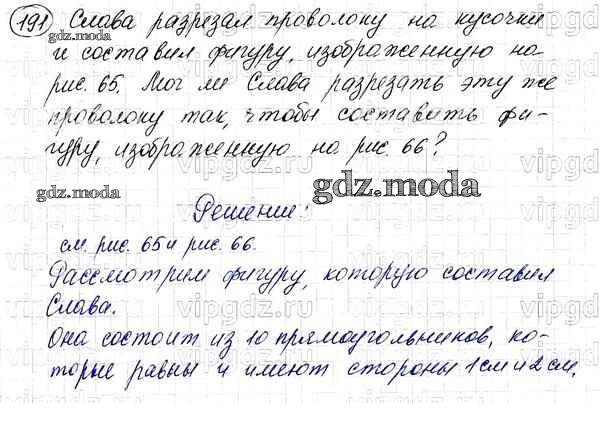 191 Слава разрезал проволоку на кусочки
и составил фигуру, изображенную на
рис. 65. Мог ли Слава разрезать эту же
проволоку так, чтобы составить фи-
гуру, изображенную на рис. 66?
Решение:
см. рис. 65 и рис. 66.
Рассмотрим фигуру, которую составил
Слава.
Она состоит из 10 прямоугольников, ко-
торые равны и имеют стороны 1 см и 2 см.
gdz.moda
gdz.moda
gdz.moda
vipgdz.ru